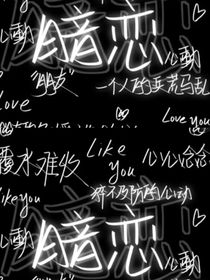 暗恋
心動
"朋友"
一个人的兵荒马乱
Love
Love you
覆水难收
Like
you
心心念念
猝不及防的心动
like you
心動
暗恋
心動